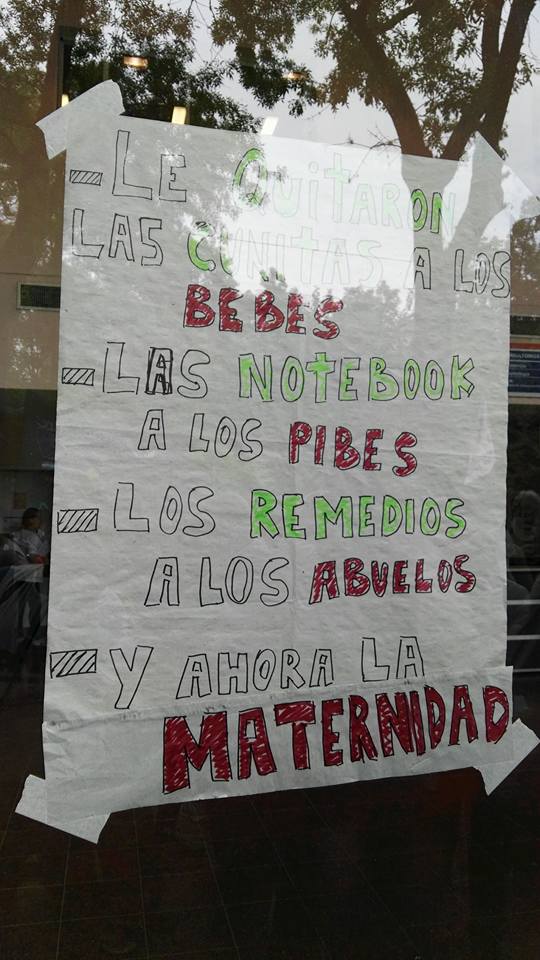 - LE QUITARON
LAS CUNITAS A LOS
BEBES
- LAS NOTEBOOK
A LOS PIBES
- LOS REMEDIOS
A LOS ABUELOS
- Y AHORA LA
MATERNIDAD